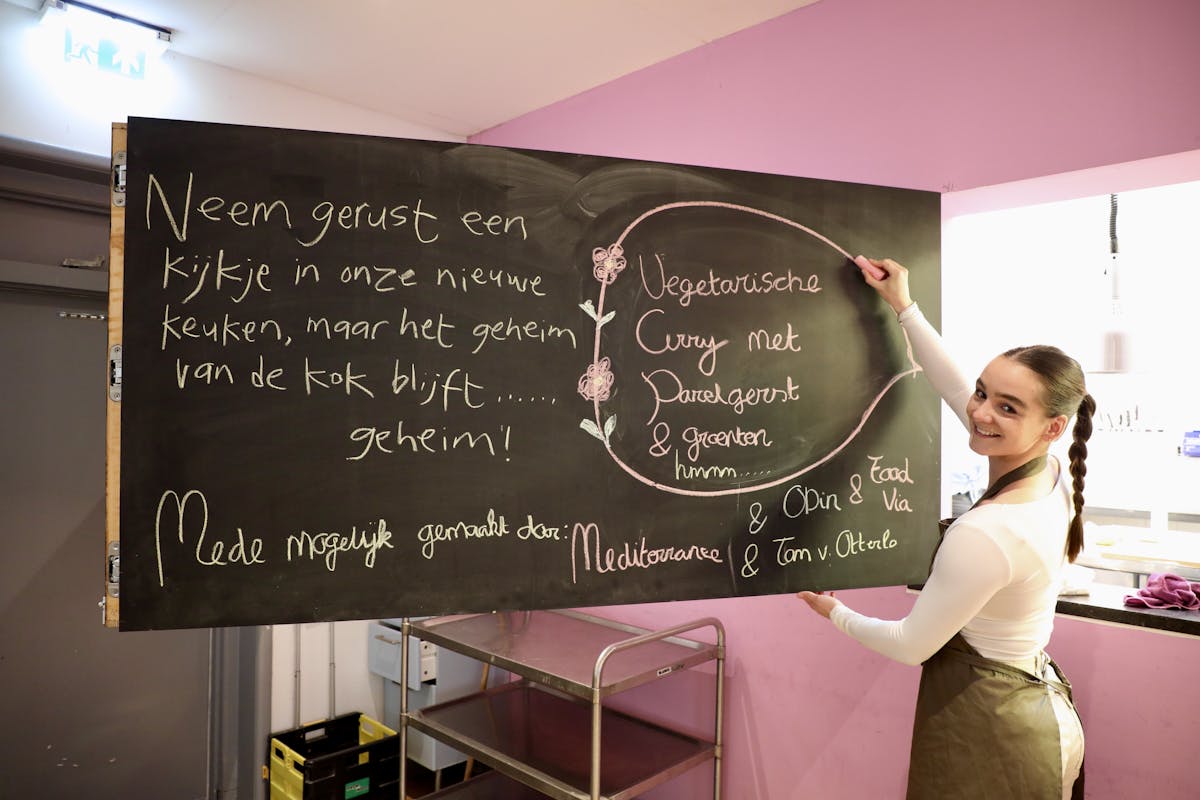 Neem gerust een
kijkje in onze nieuwe
keuken, maar het geheim
van de kok blijft ......
geheim!
Vegetarische
Curry met
Parelgerst
& groenten
hmmm.....
Mede mogelijk gemaakt door: Mediterranee
& Odin & Food Via
& Tom v. Otterlo